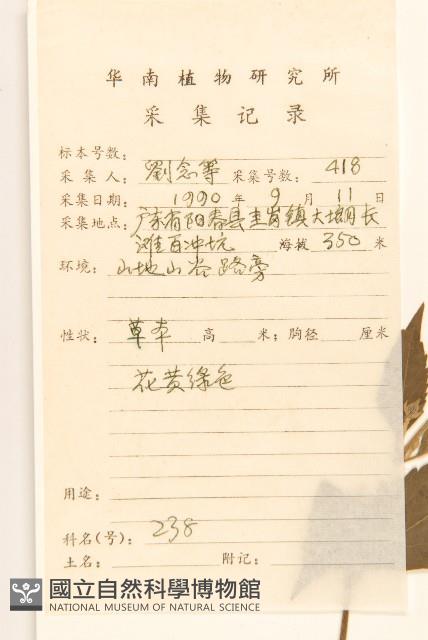 华南植物研究所
采集记录
标本号数：
采集人：劉念等 采集号数：418
采集日期：1990年9月11日
采集地点：广东省阳春县圭岗镇大塱月长
滩百冲坑 海拔350米
环境：山地山谷路旁
性状：草本 高 米；胸径 厘米
花黄绿色
用途：
科名(号)：238
土名： 附记：
國立自然科學博物館
NATIONAL MUSEUM OF NATURAL SCIENCE